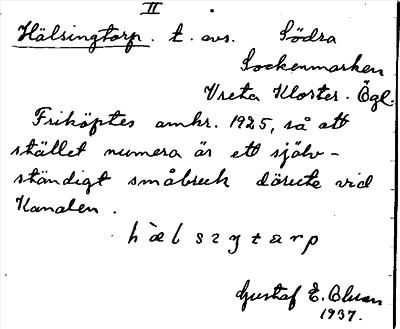 II
Hälsingtorp. t. avs. Södra
Sockenmarken
Vreta Kloster. Ögl.
Friköptes omkr. 1925, så att
stället numera är ett själv-
ständigt småbruk däruete vid
Kanalen.
hælszytarp
Gustaf E. Bluan
1937.